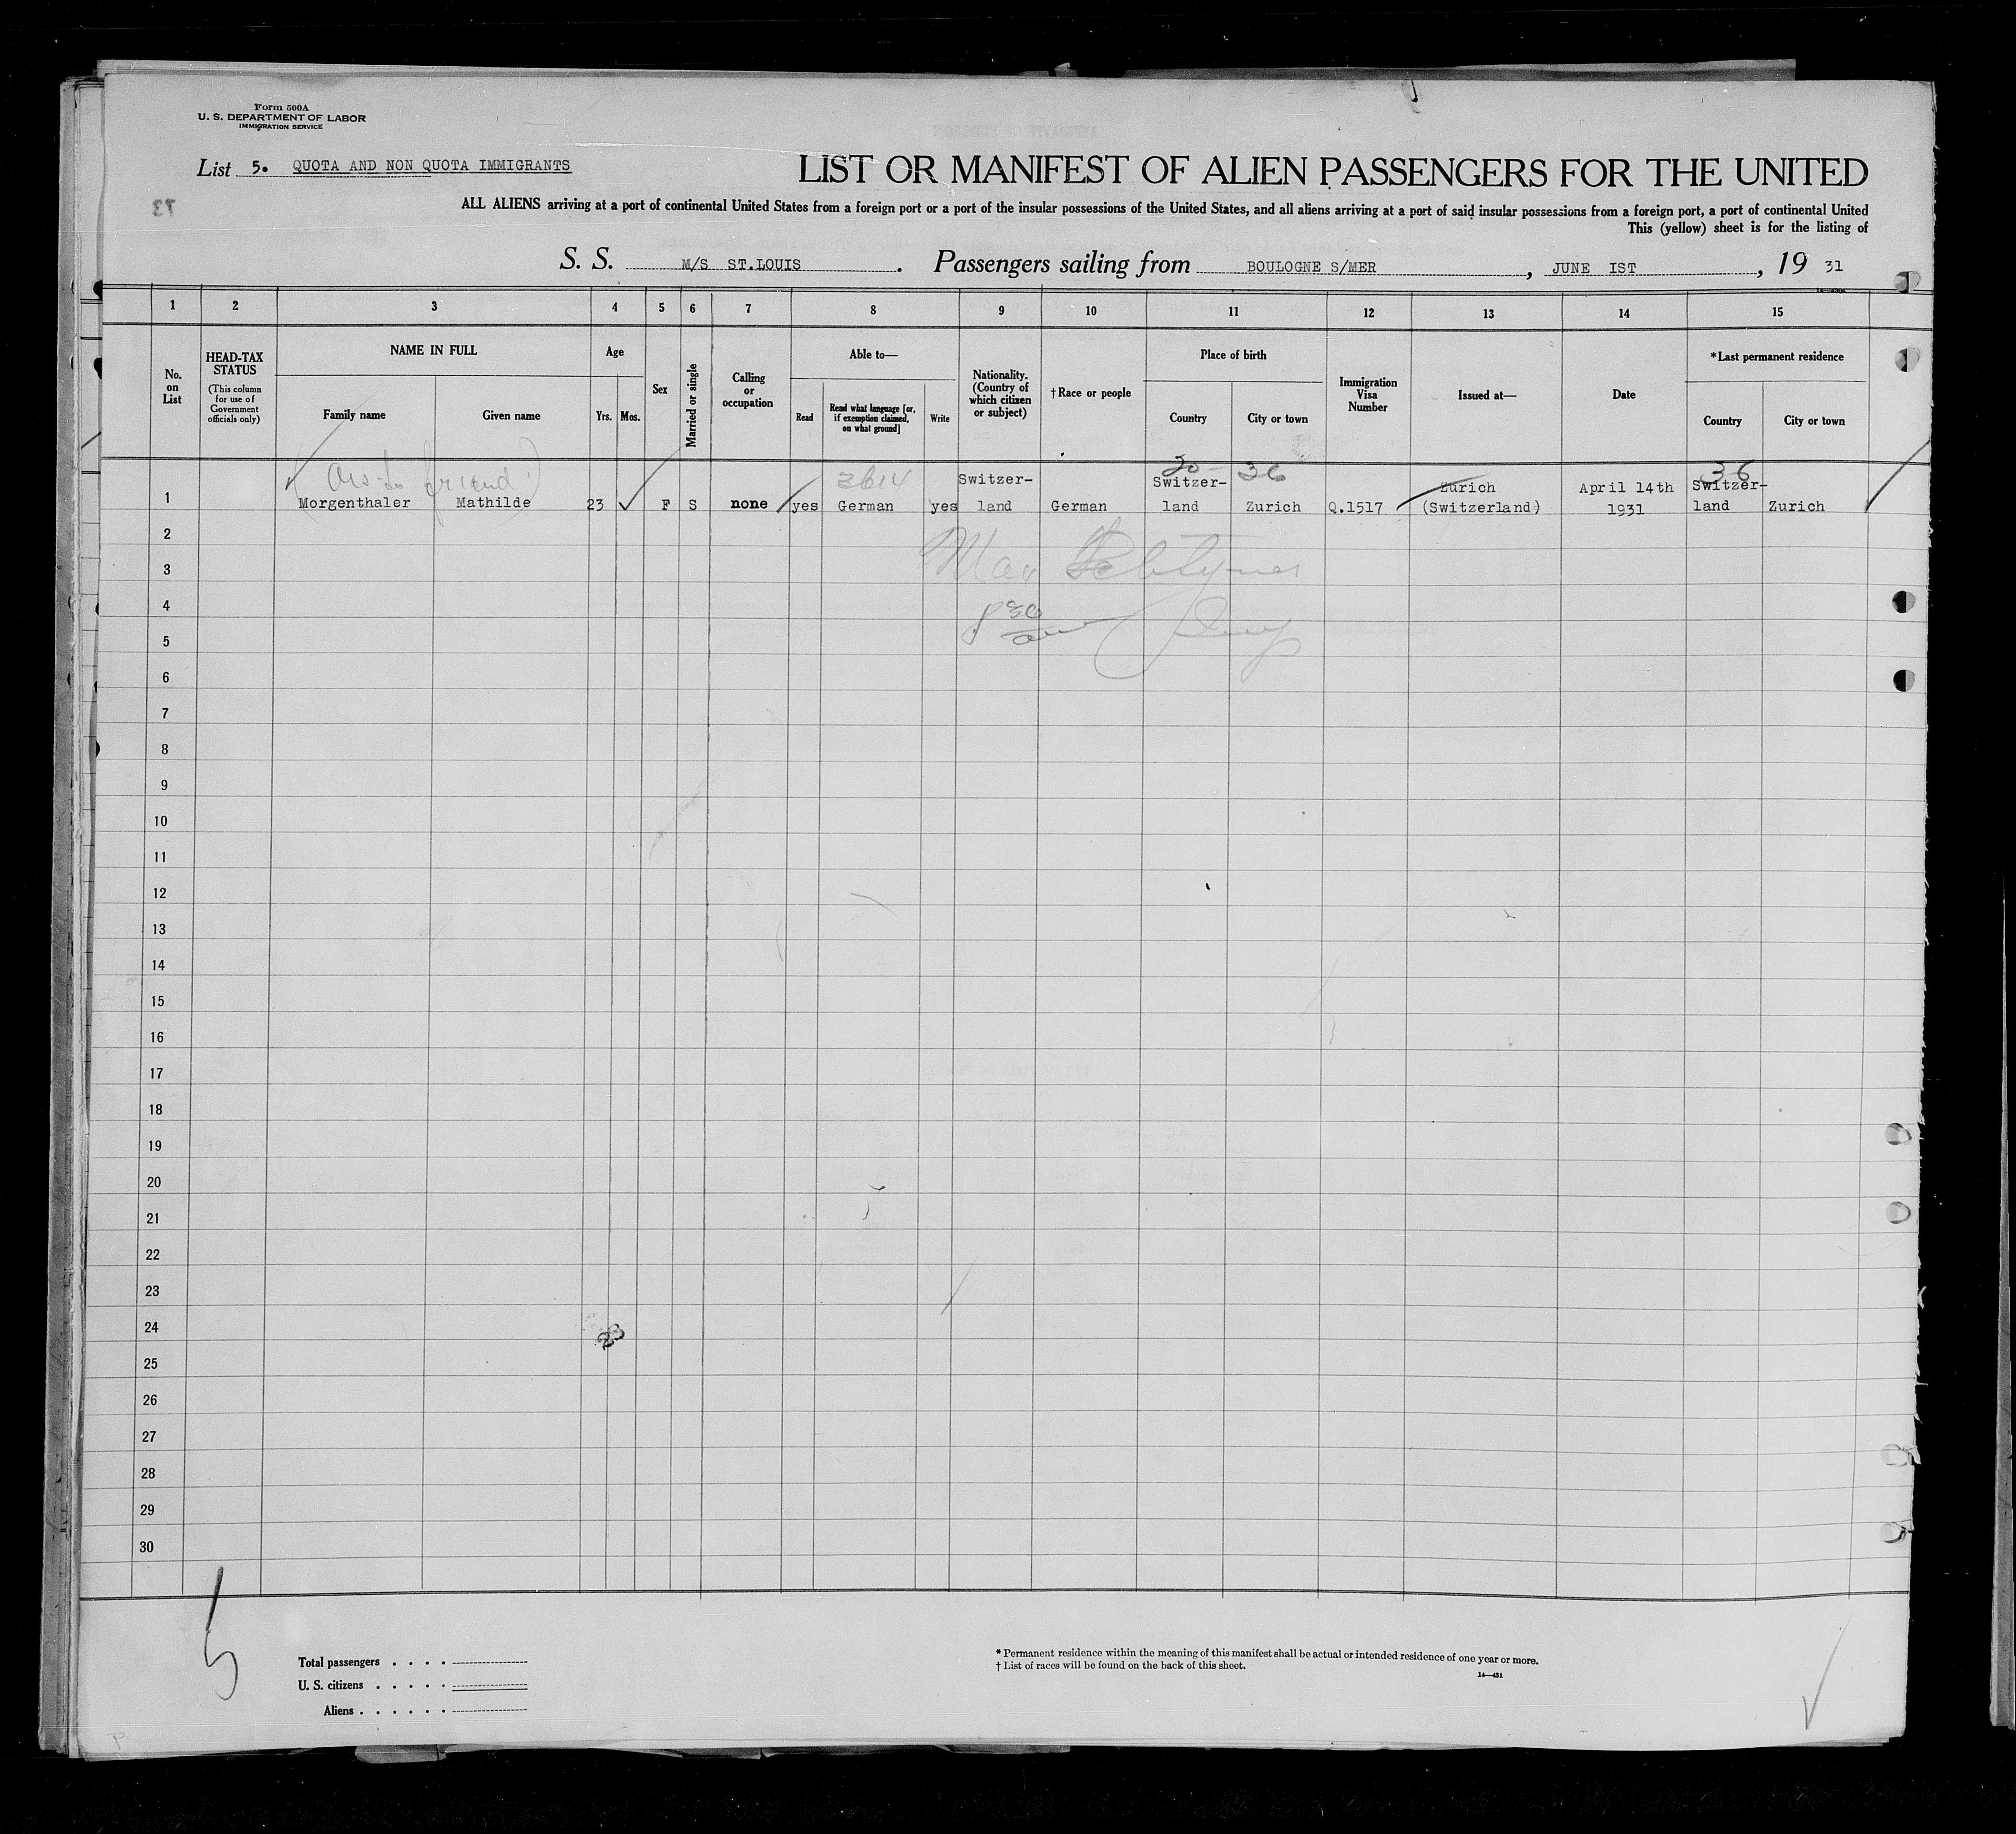 Form 500A
U. S. DEPARTMENT OF LABOR
IMMIGRATION SERVICE
List 5. QUOTA AND NON QUOTA IMMIGRANTS
LIST OR MANIFEST OF ALIEN PASSENGERS FOR THE UNITED
73
ALL ALIENS arriving at a port of continental United States from a foreign port or a port of the insular possessions of the United States, and all aliens arriving at a port of said insular possessions from a foreign port, a port of continental United
This (yellow) sheet is for the listing of
S. S. M/S ST.LOUIS . Passengers sailing from BOULOGNE S/MER , JUNE IST , 19 31
1 2 3 4 5 6 7 8 9 10 11 12 13 14 15
No. on List
HEAD-TAX STATUS (This column for use of Government officials only)
NAME IN FULL
Family name Given name
Age
Yrs. Mos.
Sex
Married or single
Calling or occupation
Able to—
Read Read what language [or, if exemption claimed, on what ground] Write
Nationality. (Country of which citizen or subject)
†Race or people
Place of birth
Country City or town
Immigration Visa Number
Issued at—
Date
*Last permanent residence
Country City or town
friend
3614 30 - 36 36
1 Morgenthaler Mathilde 23 F S none yes German yes Switzer-land German Switzer-land Zurich Q.1517 Zurich (Switzerland) April 14th 1931 Switzer-land Zurich
2
3 Max
4 8 30
5
6
7
8
9
10
11
12
13
14
15
16
17
18
19
20
21
22
23
24
25
26
27
28
29
30
5
Total passengers . . . .
U. S. citizens . . . . .
Aliens . . . . . .
* Permanent residence within the meaning of this manifest shall be actual or intended residence of one year or more.
† List of races will be found on the back of this sheet.
14—431